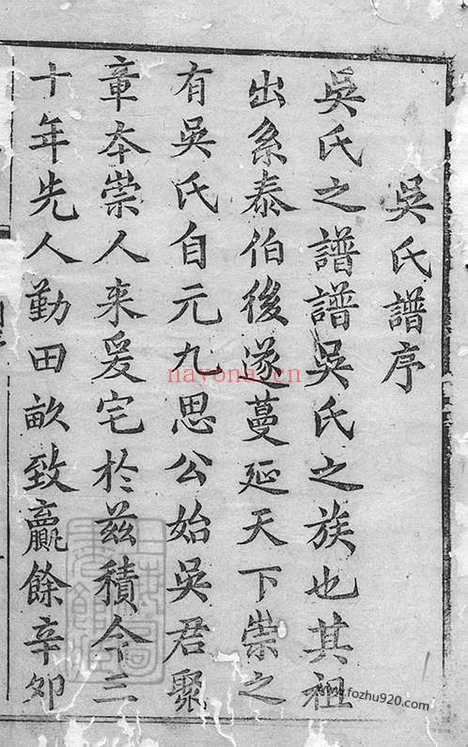 吳氏譜序
吳氏之譜譜吳氏之族也其祖
出系泰伯後遂蔓延天下崇之
有吳氏自元九思公始吳君聚
章本崇人来爰宅於兹積今三
十年先人勤田畝致贏餘辛卯
nayona.cn
www.fozhu920.com